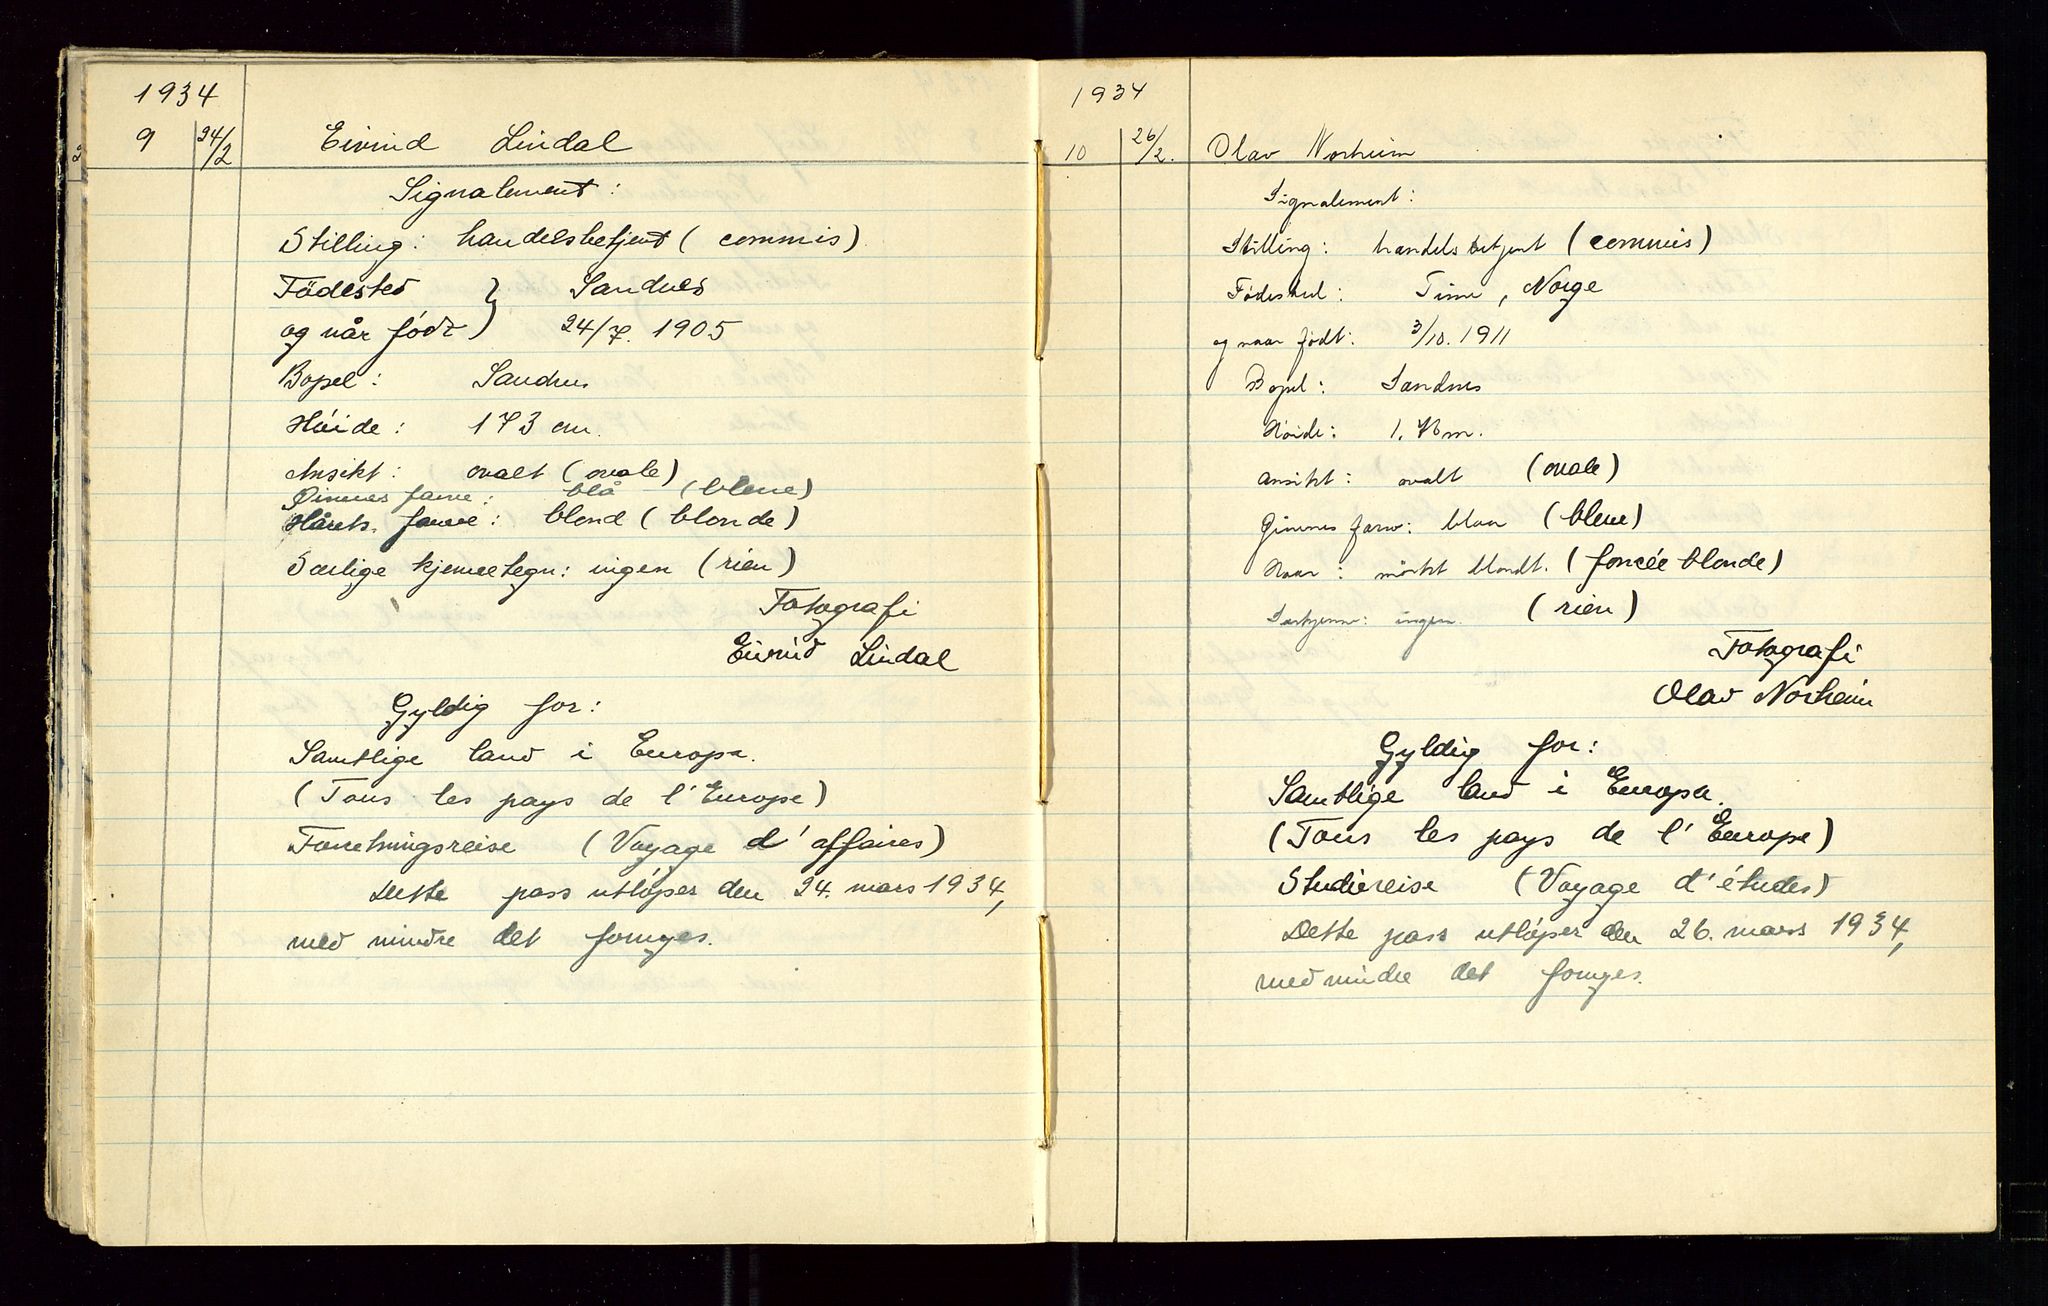 1934
9 24/2 Eivind Lindal
Signalement:
Stilling: handelsbetjent (commis)
Födested } Sandnes
og når født } 24/7. 1905
Bopel: Sandnes
Høide: 173 cm.
Ansikt: ovalt (ovale)
Øinnes farve: blå (bleue)
Hårets farve: blond (blonde)
Særlige kjennetegn: ingen (rien)
Fotografi
Eivind Lindal
Gyldig for:
Samtlige land i Europa.
(Tous les pays de l'Europe)
Forretningsreise (Voyage d'affaires)
Dette pass utløper den 24. mars 1934,
med mindre det fornyes.
1934
10 26/2. Olav Norheim
Signalement:
Stilling: handelsbetjent (commis)
Fødested: Time, Norge
og naar født: 3/10. 1911
Bopel: Sandnes
Høide: 1.76 m.
Ansikt: ovalt (ovale)
Øinnes farve: blaa (bleue)
Haar: mörkt blondt. (foncée blonde)
Særkjenne: ingen. (rien)
Fotografi
Olav Norheim
Gyldig for:
Samtlige land i Europa.
(Tous les pays de l'Europe)
Studiereise (Voyage d'études)
Dette pass utløper den 26. mars 1934,
med mindre det fornyes.